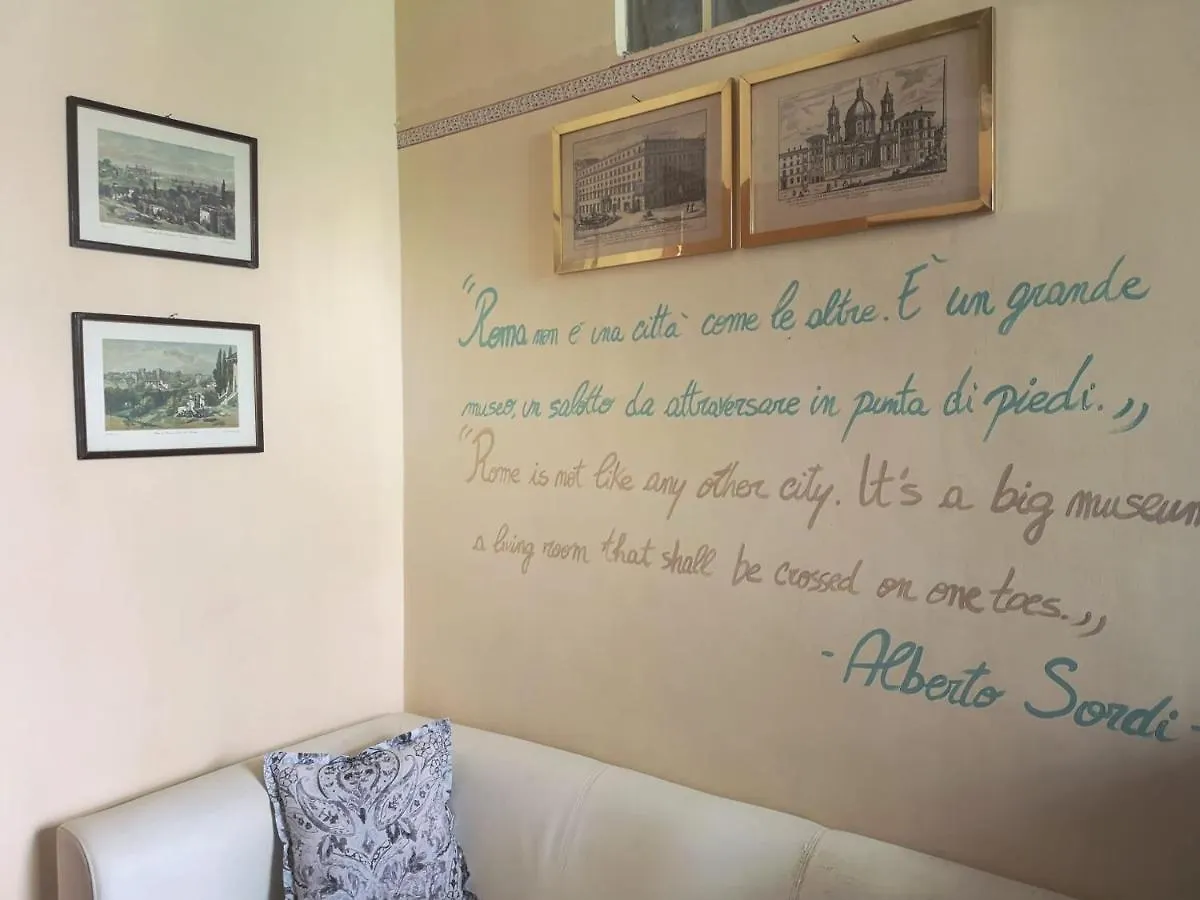 “Roma non é una città come le altre. È un grande
museo, un salotto da attraversare in punta di piedi.„
“Rome is not like any other city. It's a big museum
a living room that shall be crossed on one toes.„
- Alberto Sordi -